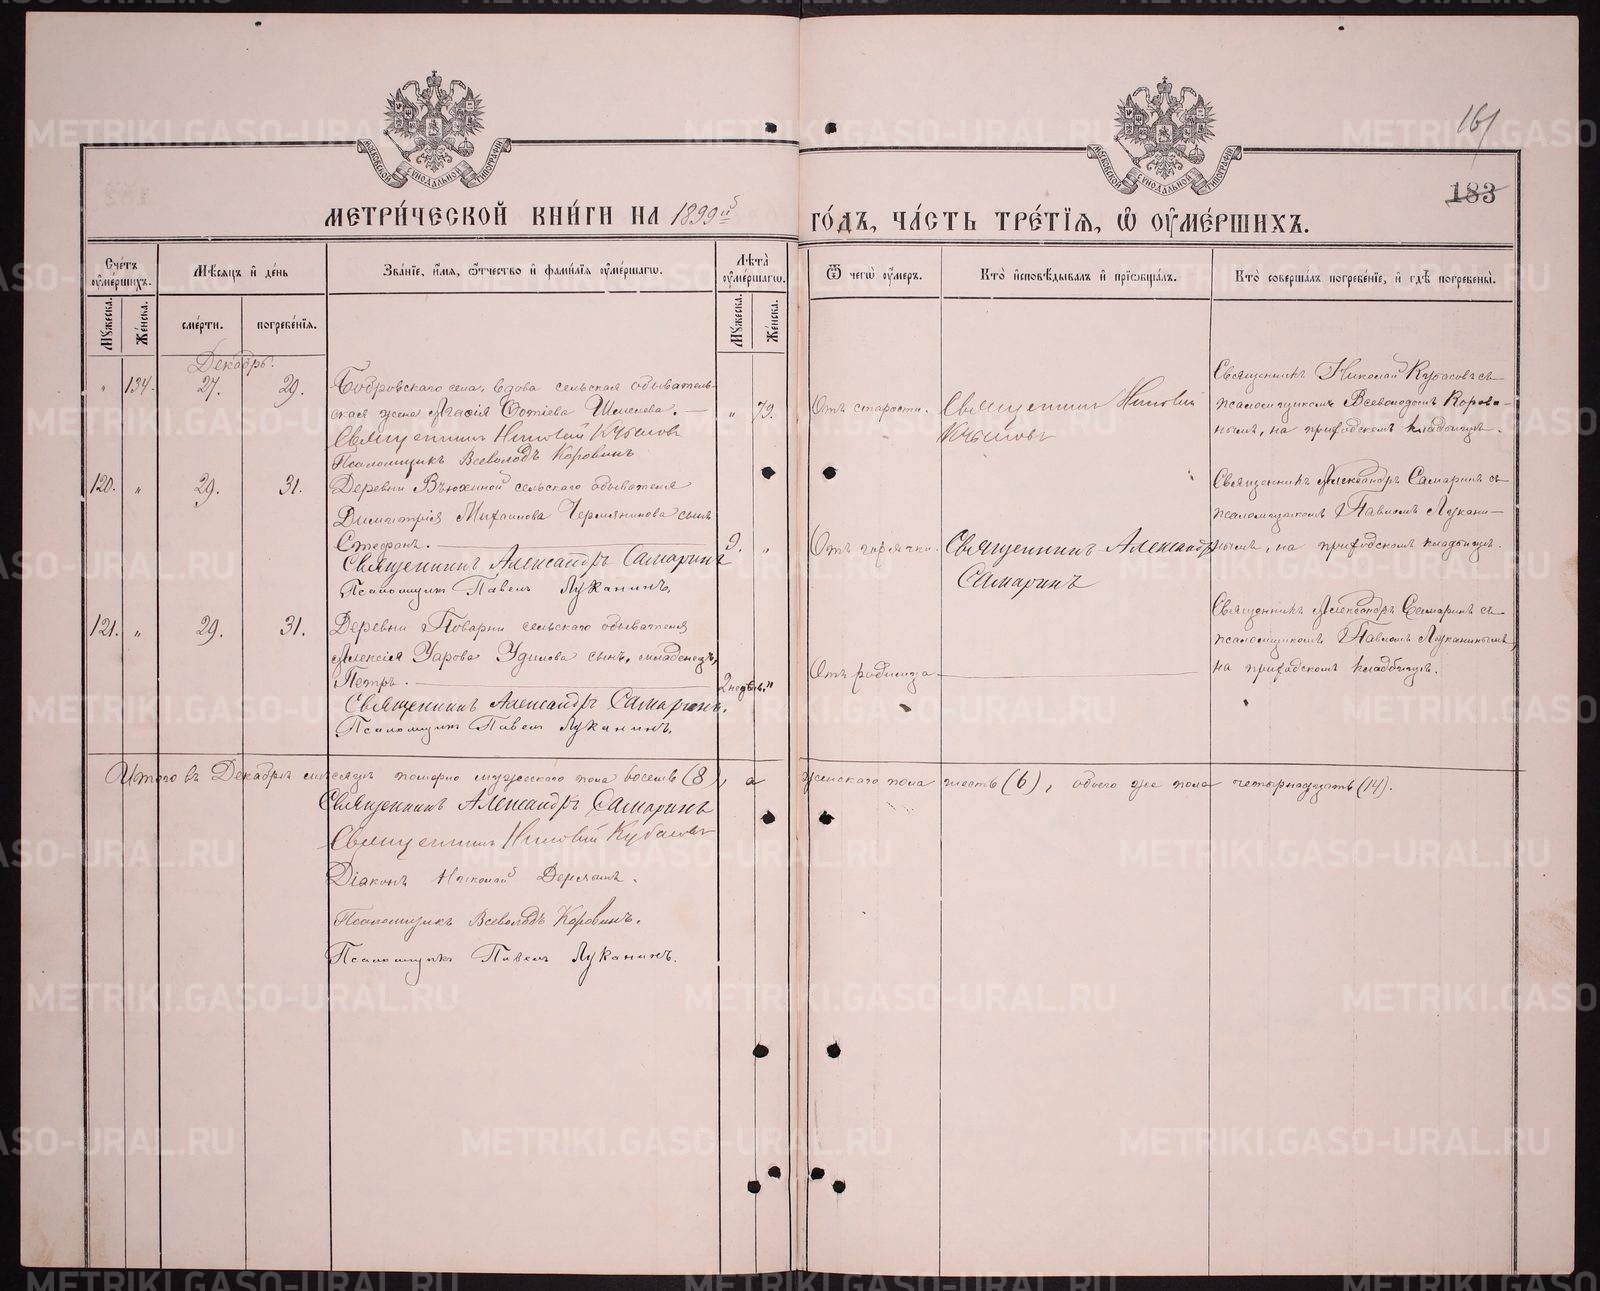 161
183
МОСКОВСКОЙ СУНОДАЛЬНОЙ ТИПОГРАФИИ
МОСКОВСКОЙ СУНОДАЛЬНОЙ ТИПОГРАФИИ
МЕТРИ́ЧЕСКОЙ КНИ́ГИ НА 1899й
ГО́ДЪ, ЧА́СТЬ ТРЕ́ТІЯ, Ѡ ОУМЕ́РШИХЪ.
Сче́тъ оумершихъ.
Мужеска.
Же́нска.
Мѣсяцъ и де́нь
сме́рти.
погребе́нія.
Зва́ніе, и́мя, ѻтчество и фами́лія оуме́ршагѡ.
Лѣта̀ оуме́ршагѡ.
Мужеска.
Же́нска.
Ѿ чегѡ̀ оу́меръ.
Кто̀ исповѣ́дывалъ и прїѡбща́лъ.
Кто̀ соверша́лъ погребе́ніе, и гдѣ̀ погребены̀.
Декабрь.
" 134. 27. 29.
Бобровскаго села, вдова сельская обыватель-
ская жена
Священникъ Николай Кубасовъ
Псаломщикъ Всеволодъ Коровинъ
" 79.
Отъ старости.
Священникъ Николай
Кубасовъ
Священникъ Николай Кубасовъ съ
псаломщикомъ Всеволодомъ Корови-
нымъ, на приходскомъ кладбищѣ.
120. " 29. 31.
Деревни сельскаго обывателя
Димитрія Михаилова сынъ
Стефанъ.
Священникъ Александръ Самаринъ
Псаломщикъ Павелъ Луканинъ.
9. "
Отъ горячки.
Священникъ Александръ
Самаринъ
Священникъ Александръ Самаринъ съ
псаломщикомъ Павломъ Лукани-
нымъ, на приходскомъ кладбищѣ.
121. " 29. 31.
Деревни Поварни сельскаго обывателя
Алексія Уарова Удилова сынъ, младенецъ,
Петръ.
Священникъ Александръ Самаринъ.
Псаломщикъ Павелъ Луканинъ.
2 недѣль. "
Отъ родимца
Священникъ Александръ Самаринъ съ
псаломщикомъ Павломъ Луканинымъ,
на приходскомъ кладбищѣ.
Итого въ Декабрѣ мѣсяцѣ померло мужескаго пола восемь (8), а женскаго пола шесть (6), обоего же пола четырнадцать (14).
Священникъ Александръ Самаринъ
Священникъ Николай Кубасовъ
Діаконъ Николай
Псаломщикъ Всеволодъ Коровинъ.
Псаломщикъ Павелъ Луканинъ.
METRIKI.GASO-URAL.RU